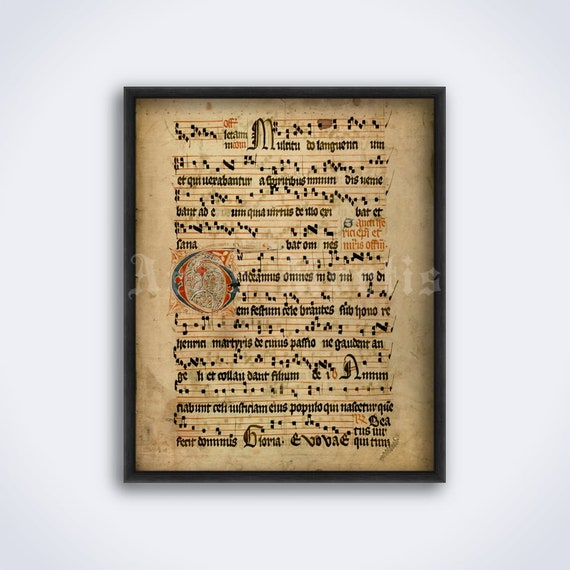 off
letami
Multitu do languenti um
et qui vexabantur a spiritibus inmun dis venie
bant ad e um quia virtus de illo exi bat et
sana bat om nes
Gaudeamus omnes in do mi no di
em festum cele brantes sub hono re
henrici martyris de cuius passio ne gaudent an
ge li et collau dant filium de i Annun
ciabunt celi iusticiam eius populo qui nascetur que
fecit dominus Gloria EVOVAE
Bea
tus vir
qui tim